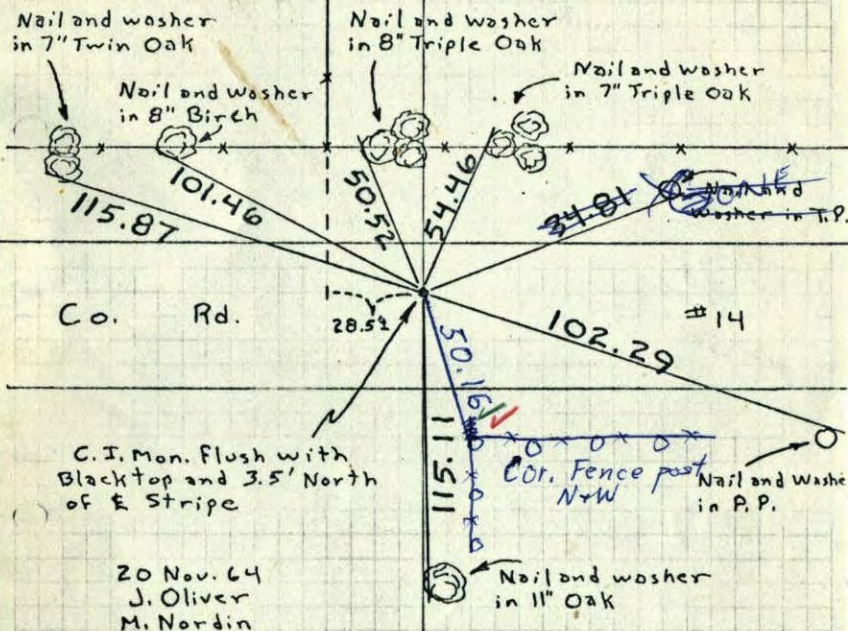 Nail and washer
in 7" Twin Oak
Nail and washer
in 8" Birch
Nail and washer
in 8" Triple Oak
Nail and washer
in 7" Triple Oak
115.87
101.46
50.52
54.46
34.81
GONE
Nail and
washer in T.P.
Co. Rd.
28.5±
#14
102.29
50.16
115.11
C.I. Mon. Flush with
Blacktop and 3.5' North
of ℄ Stripe
Cor. Fence post
N+W
Nail and Washe
in P.P.
20 Nov. 64
J. Oliver
M. Nordin
Nail and washer
in 11" Oak